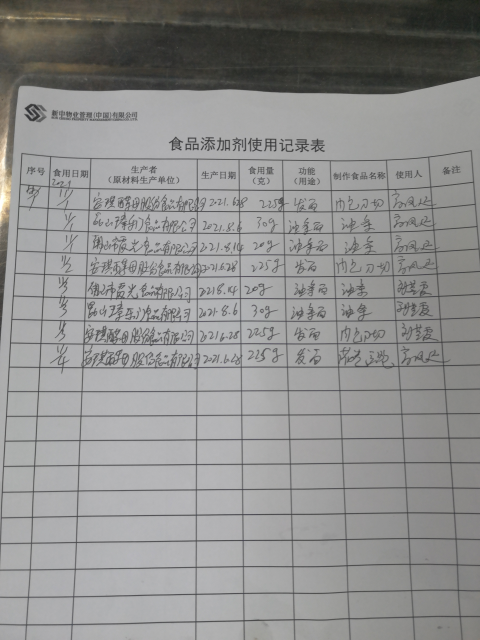 新中物业管理(中国)有限公司
食品添加剂使用记录表
序号 食用日期 生产者（原材料生产单位） 生产日期 食用量（克） 功能（用途） 制作食品名称 使用人 备注
2021
11/1 安琪酵母股份有限公司 2021.6.28 225g 发面 肉包刀切
11/1 食品有限公司 2021.8.6 30g 油条面 油条
11/1 佛山市霞光食品有限公司 2021.8.14 20g 油条面 油条
11/2 安琪酵母股份有限公司 2021.6.28 225g 发面 肉包刀切
11/3 佛山市霞光食品有限公司 2021.8.14 20g 油条面 油条
11/3 食品有限公司 2021.8.6 30g 油条面 油条
11/3 安琪酵母股份食品有限公司 2021.6.28 225g 发面 肉包刀切
11/4 安琪酵母股份食品有限公司 2021.6.28 225g 发面